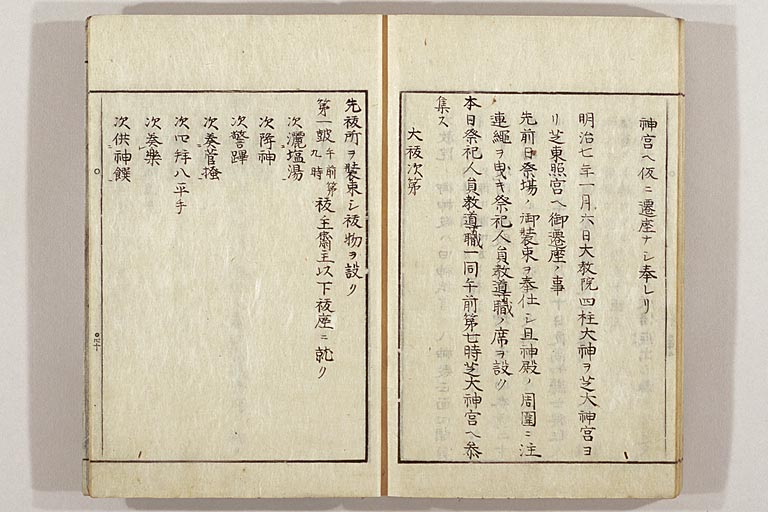 神宮ヘ仮ニ遷座ナシ奉レリ
明治七年一月六日大教院四柱大神ヲ芝大神宮ヨ
リ芝東照宮ヘ御遷座ノ事
先前日祭場ノ御装束ヲ奉仕シ且神殿ノ周圍ニ注
連繩ヲ曳キ祭祀人員教導職ノ席ヲ設ク
本日祭祀人員教導職一同午前第七時芝大神宮ヘ參
集ス
大祓次第
先祓所ヲ装束シ祓物ヲ設リ
第一皷午前第九時祓主齋主以下祓座ニ就リ
次灑塩湯
次降神
次警蹕
次奏菅掻
次四拜八平手
次奏樂
次供神饌